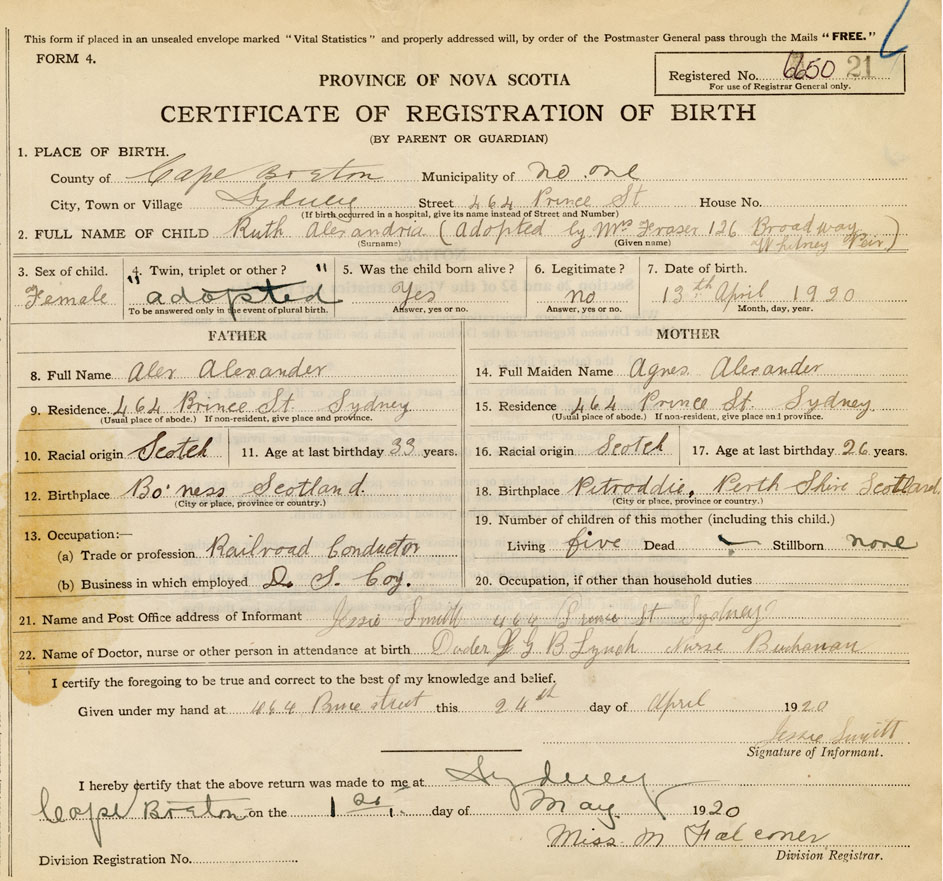 This form if placed in an unsealed envelope marked "Vital Statistics" and properly addressed will, by order of the Postmaster General pass through the Mails "FREE."
FORM 4.
Registered No. 6650 21
For use of Registrar General only.
PROVINCE OF NOVA SCOTIA
CERTIFICATE OF REGISTRATION OF BIRTH
(BY PARENT OR GUARDIAN)
1. PLACE OF BIRTH.
County of Cape Breton Municipality of no. one
City, Town or Village Sydney Street 464 Prince St House No.
(If birth occurred in a hospital, give its name instead of Street and Number)
2. FULL NAME OF CHILD Ruth Alexandria (Adopted by Mrs Fraser 126 Broadway Whitney Pier)
(Surname) (Given name)
3. Sex of child. 4. Twin, triplet or other? 5. Was the child born alive? 6. Legitimate? 7. Date of birth.
Female "adopted" Yes no 13th April 1920
To be answered only in the event of plural birth. Answer, yes or no. Answer, yes or no. Month, day, year.
FATHER MOTHER
8. Full Name Alex Alexander 14. Full Maiden Name Agnes Alexander
9. Residence. 464 Prince St. Sydney 15. Residence 464 Prince St. Sydney
(Usual place of abode.) If non-resident, give place and province. (Usual place of abode.) If non-resident, give place an1 province.
10. Racial origin Scotch 11. Age at last birthday 33 years. 16. Racial origin Scotch 17. Age at last birthday 26 years.
12. Birthplace Bo'ness Scotland. 18. Birthplace Pitroddie, Perth Shire Scotland
(City or place, province or country.) (City or place, province or country.)
19. Number of children of this mother (including this child.)
13. Occupation:—
(a) Trade or profession Railroad Conductor Living five Dead Stillborn none
(b) Business in which employed D. S. Coy. 20. Occupation, if other than household duties
21. Name and Post Office address of Informant Jessie Smith 464 Prince St Sydney
22. Name of Doctor, nurse or other person in attendance at birth G B Lynch Nurse Buchanan
I certify the foregoing to be true and correct to the best of my knowledge and belief.
Given under my hand at 464 street this 24th day of April 1920
Jessie
Signature of Informant.
I hereby certify that the above return was made to me at Sydney
Cape Breton on the 1 day of May 1920
Miss. M Falconer
Division Registration No. Division Registrar.